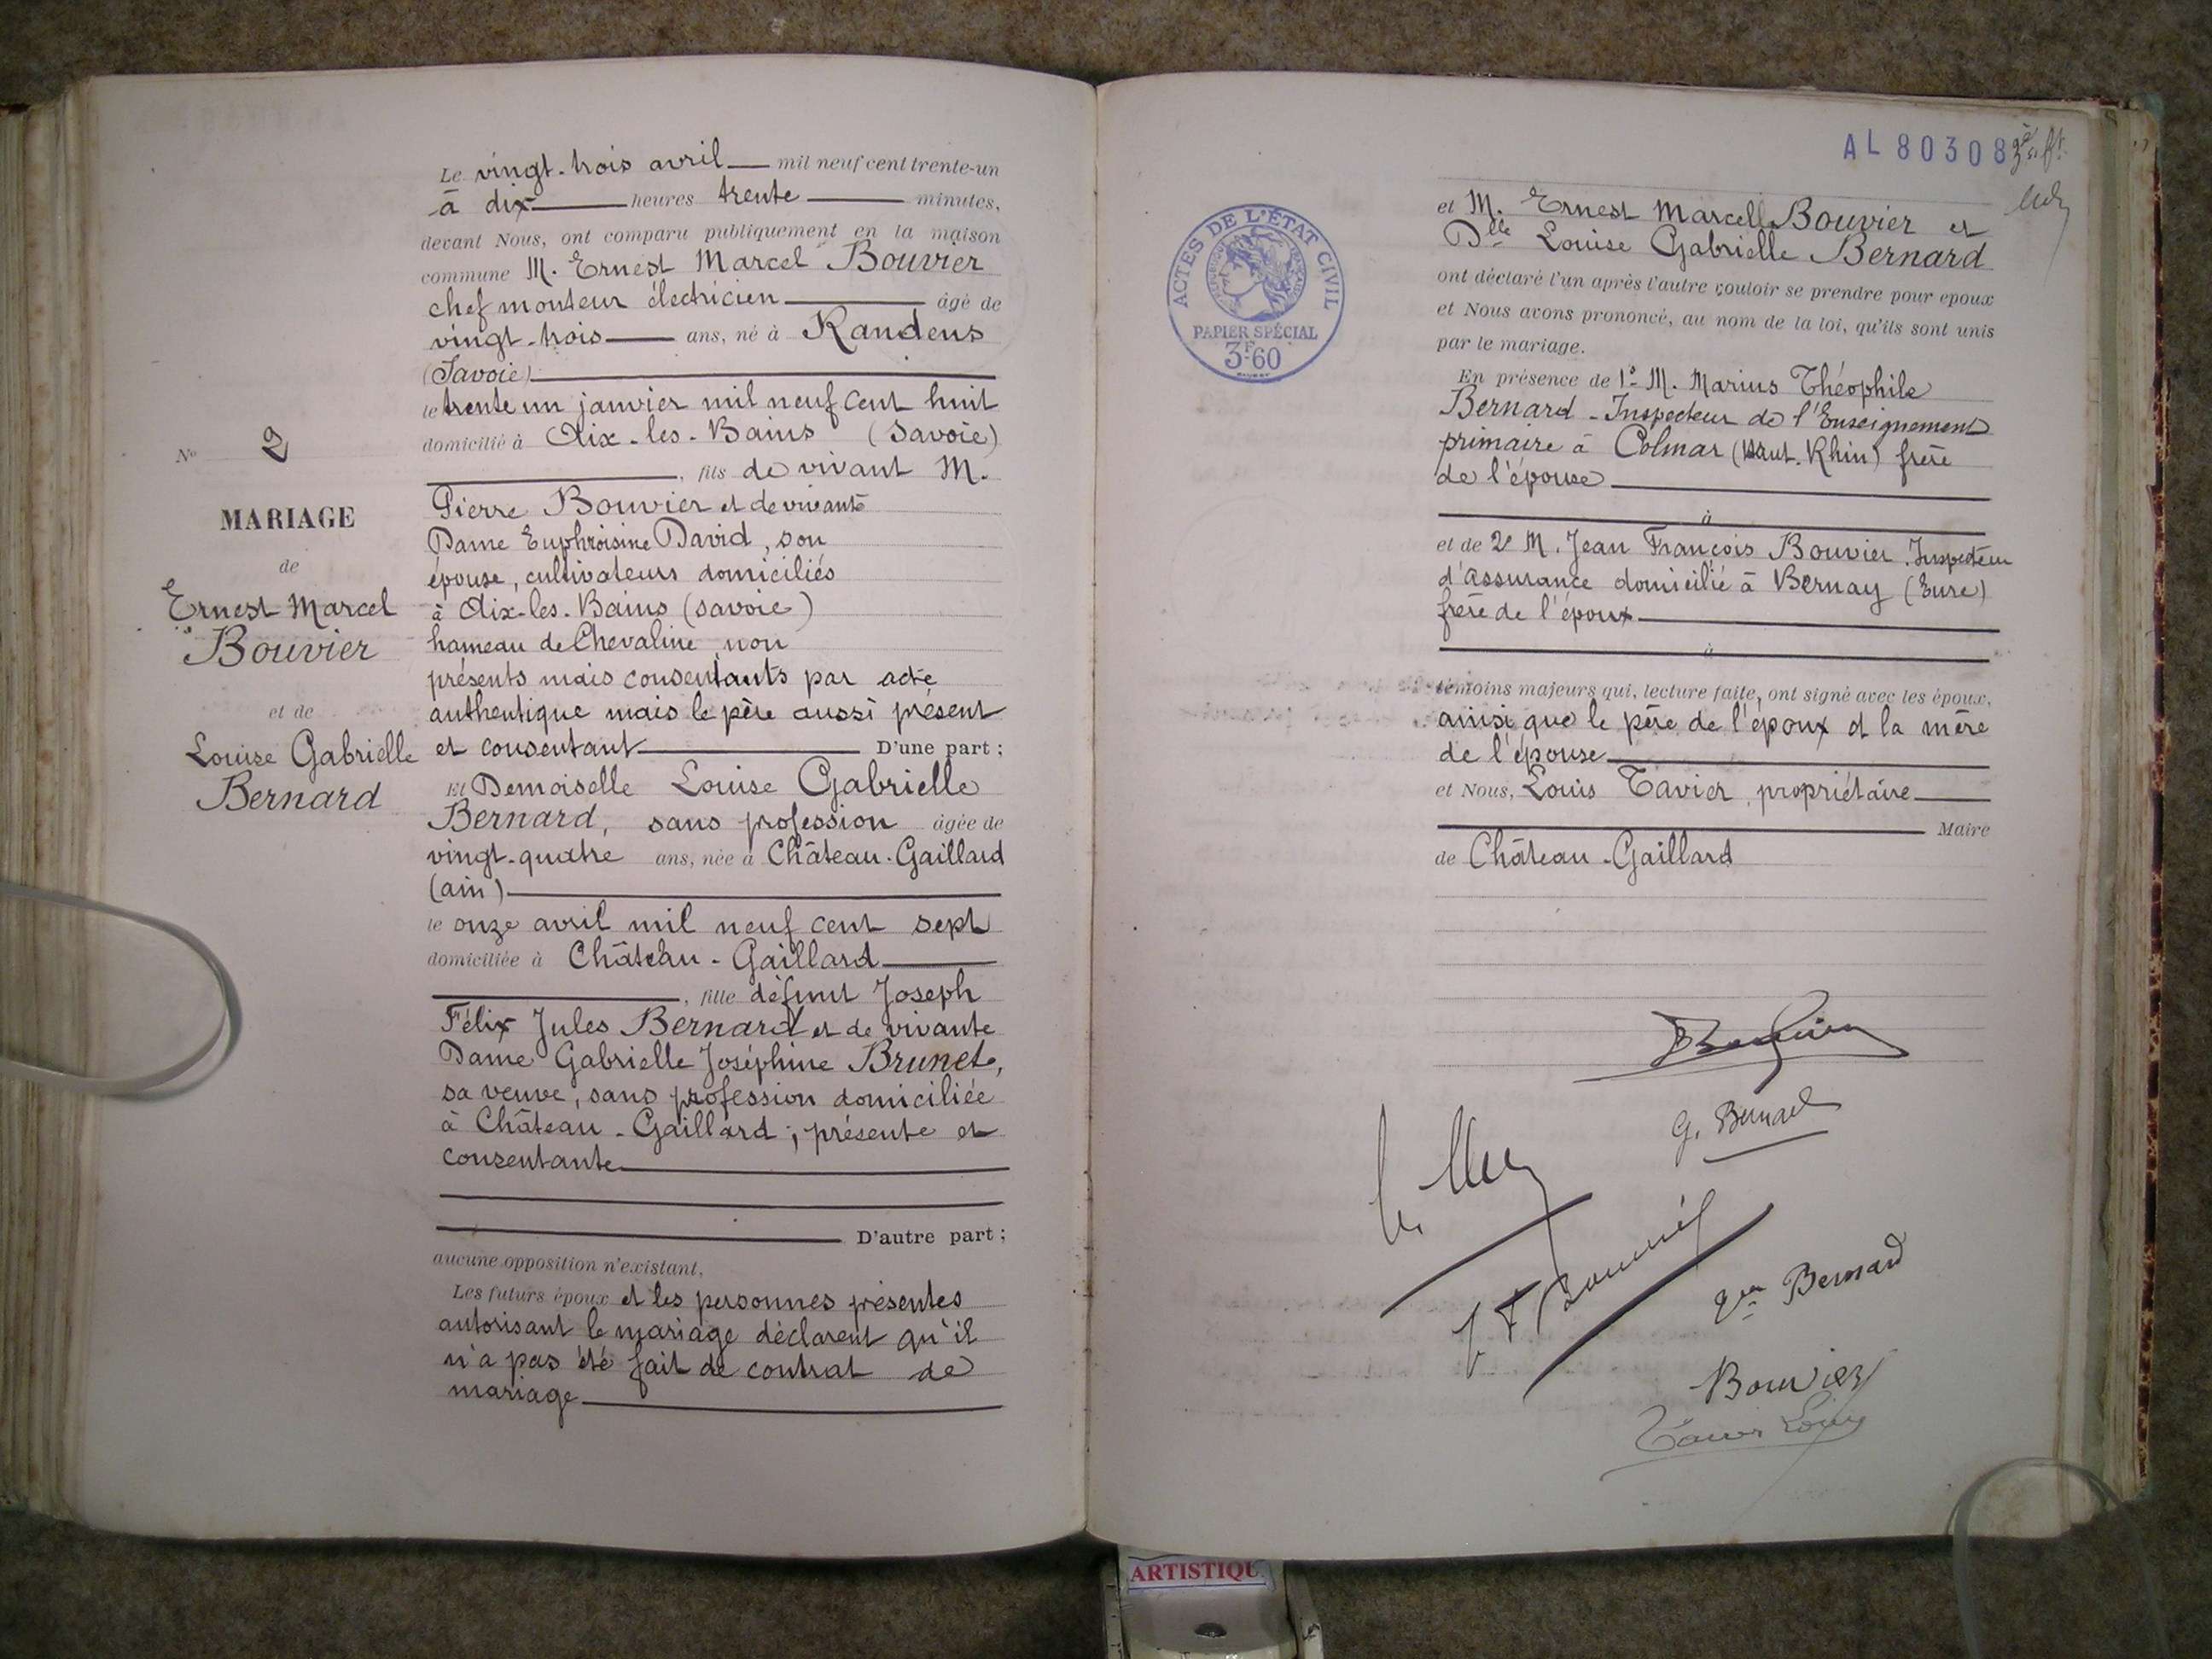 Le vingt-trois avril mil neuf cent trente-un
à dix heures trente minutes,
devant Nous, ont comparu publiquement en la maison
commune M. Ernest Marcel Bouvier
chef monteur électricien âgé de
vingt-trois ans, né à Randens
(Savoie)
le trente un janvier mil neuf cent huit
domicilié à Aix-les-Bains (Savoie)
, fils de vivant M.
Pierre Bouvier et de vivante
Dame Euphroisine David, son
épouse, cultivateurs domiciliés
à Aix-les-Bains (savoie)
hameau de Chevaline, non
présents mais consentants par acte
authentique mais le père aussi présent
et consentant D'une part ;
Et Demoiselle Louise Gabrielle
Bernard, sans profession âgée de
vingt-quatre ans, née à Château-Gaillard
(ain)
le onze avril mil neuf cent sept
domiciliée à Château-Gaillard
, fille défunt Joseph
Félix Jules Bernard et de vivante
Dame Gabrielle Joséphine Brunet,
sa veuve, sans profession domiciliée
à Château-Gaillard ; présente et
consentante
D'autre part ;
aucune opposition n'existant,
Les futurs époux et les personnes présentes
autorisant le mariage déclarent qu'il
n'a pas été fait de contrat de
mariage
No 2
MARIAGE
de
Ernest Marcel
Bouvier
et de
Louise Gabrielle
Bernard
AL 80308
ACTES DE L'ÉTAT CIVIL
PAPIER SPÉCIAL
3F60
et M. Ernest Marcell Bouvier et
Dlle Louise Gabrielle Bernard
ont déclaré l'un après l'autre vouloir se prendre pour époux
et Nous avons prononcé, au nom de la loi, qu'ils sont unis
par le mariage.
En présence de 1° M. Marius Théophile
Bernard - Inspecteur de l'Enseignement
primaire à Colmar (Haut-Rhin) frère
de l'épouse
à
et de 2° M. Jean François Bouvier Inspecteur
d'assurance domicilié à Bernay (Eure)
frère de l'époux
à
témoins majeurs qui, lecture faite, ont signé avec les époux,
ainsi que le père de l'époux et la mère
de l'épouse
et Nous, Louis Tavier, propriétaire
Maire
de Château-Gaillard
G. Bernard
J F Bouvier
Bernard
Bouvier
Tavier Louis
ARTISTIQU